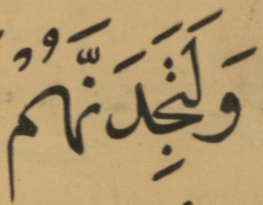 وَلَتَجِدَنَّهُمْ